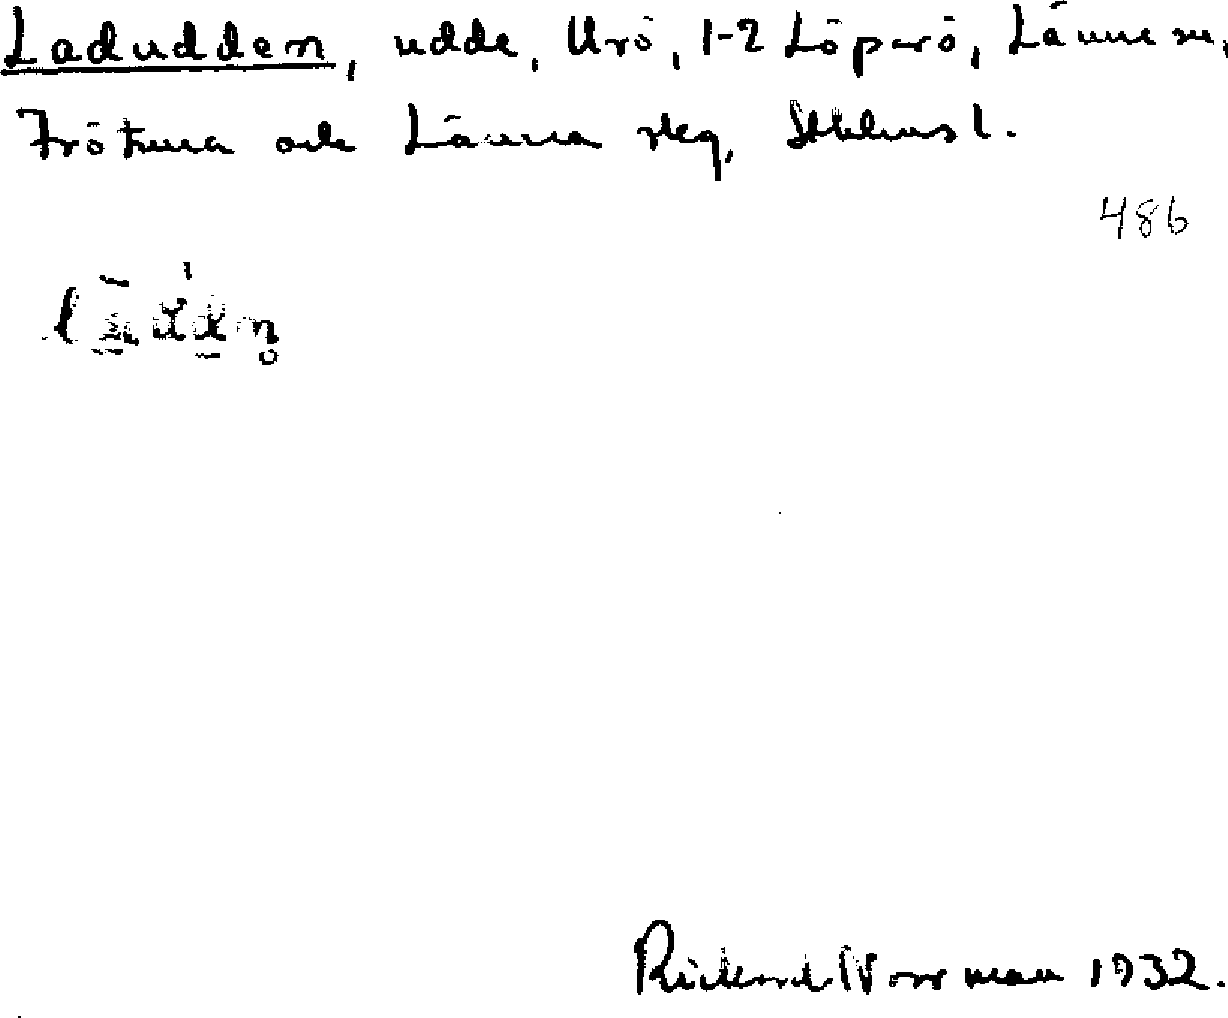 Ladudden, udde, Urö, 1-2 Löparö, Länna sn,
Frötuna och Länna skg, Sthlms l.
486
Rickard Norrman 1932.